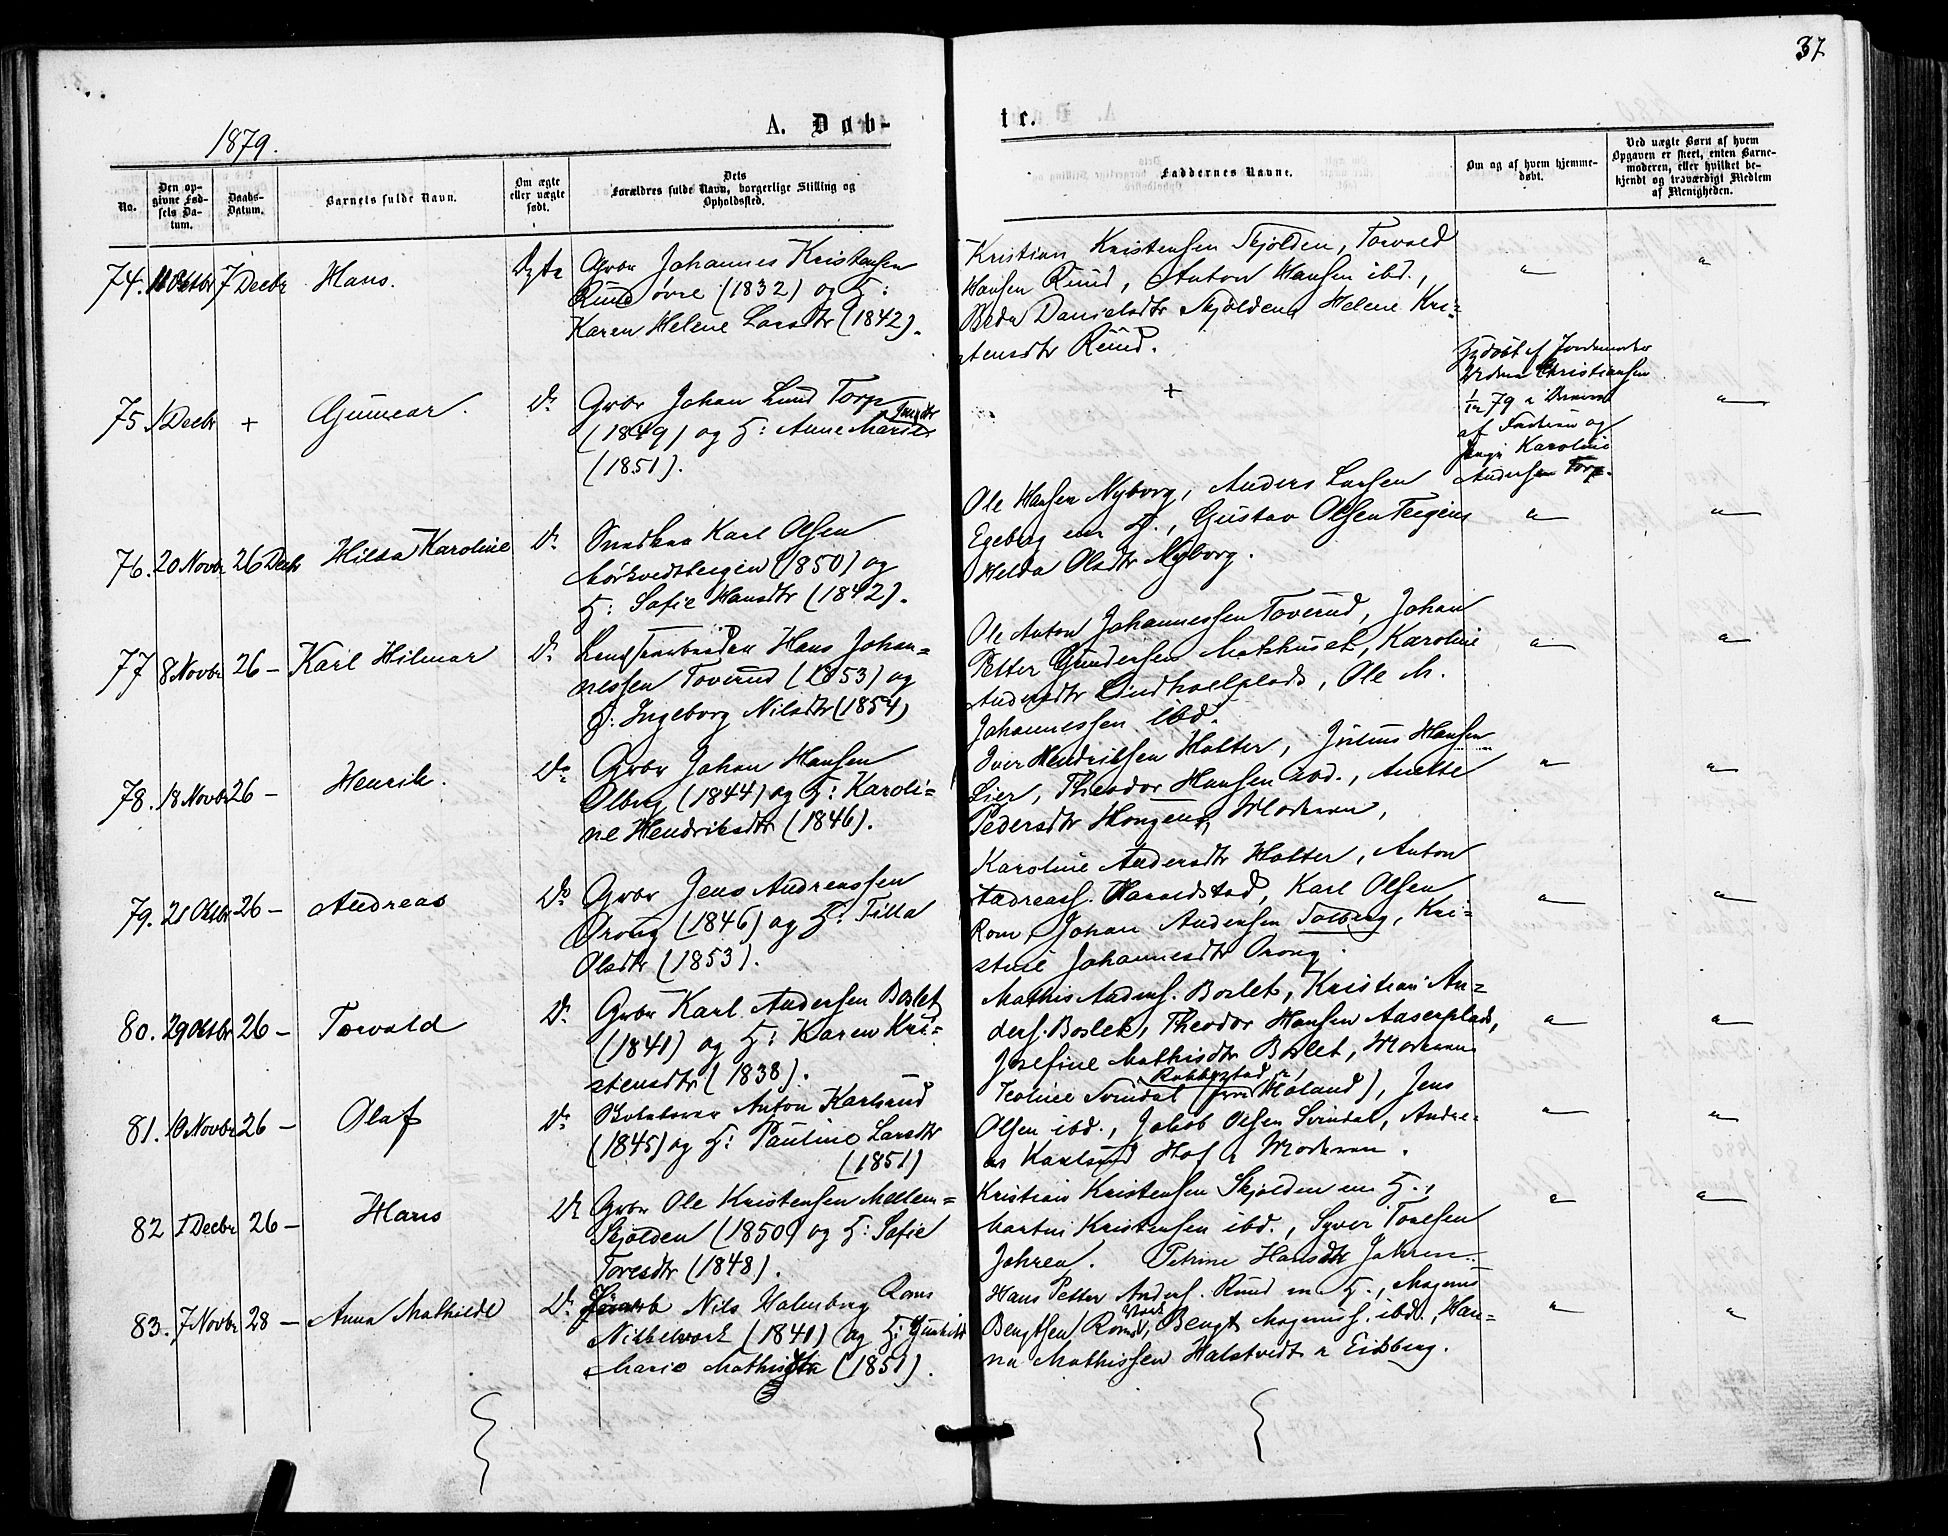 37
1879.
A. Døb-
te.
No.
Den opgivne Fødsels Datum.
Daabs-Datum.
Barnets fulde Navn.
Om ægte eller uægte født.
Dets Forældres fulde Navn, borgerlige Stilling og Opholdssted.
Faddernes Navne.
Om og af hvem hjemmedøbt.
Ved uægte Børn af hvem Opgaven er skeet, enten Barnemoderen, eller hvilket bekjendt og troværdigt Medlem af Menigheden.
74. Octbr 7 Decbr Hans. Ægte Gbr Johannes Kristensen
Ruud øvre (1832) og H:
Karen Helene Larsdtr (1842).
Kristian Kristensen Skjolden, Torvald
Hansen Ruud, Anton Hansen ibd.,
Danielsdtr Skjolden, Helene Kri=
stensdtr Ruud.
75 1 Decbr + Gunnar. Do Gbr Johan Lund Torp
(1849) og H: Anne Marie
(1851).
+
Hjdøbt af Jordemoder
Christiansen
1/12 79
af Faderen og
Karoline
Andersen Torp.
76. 20 Novbr 26 Decbr Hilda Karoline Do Karl Olsen
(1850) og
H: Sofie Hansdtr (1842).
Ole Hansen Nyborg, Anders Larsen
Egeberg m H., Gustav Olsen
Helda Olsdtr Nyborg.
77 8 Novbr 26 – Karl Hilmar Do Hans Johan=
nessen Toverud (1853) og
H: Ingeborg Nilsdtr (1854)
Ole Anton Johannessen Toverud, Johan
Petter Gundersen, Karoline
Andersdtr, Ole M.
Johannessen ibd.
78. 18 Novbr 26 – Henrik. Do Gbr Johan Hansen
Olberg (1844) og H: Karoli=
ne Hendriksdtr (1846).
Iver Hendriksen Holter, Julius Hansen
Lier, Theodor Hansen ibd., Anette
Pedersdtr, Moderen,
79. 21 Octbr 26 – Andreas Do Gbr Jens Andreassen
Orong (1846) og H: Tilla
Olsdtr (1853).
Karoline Andersdtr Holter, Anton
Andreass. Haraldstad, Karl Olsen
Rom, Johan Andersen Solberg, Kri=
stine Johannesdtr Orong.
80. 29 Octbr 26 – Torvald Do Gbr Karl Andersen Boslet
(1841) og H: Karen Kri=
stensdtr (1838).
Mathis Anders. Boslet, Kristian An=
ders. Boslet, Theodor Hansen Aaserplads,
Josefine Mathisdtr Boslet, Moderen
81. 10 Novbr 26 – Olaf Do Anton Karlsrud
(1845) og H: Pauline Larsdtr
(1851)
Teoline Svindal (Høland), Jens
Olsen ibd., Jakob Olsen Svindal, Andre=
as Karlsrud Hof & Moderen.
82 1 Decbr 26 – Hans Do Gbr Ole Kristensen Mellem=
Skjolden (1850) og H: Sofie
Toresdtr (1848).
Kristian Kristensen Skjolden m H.,
Martin Kristensen ibd., Syver Toresen
Jahren. Petrine Hansdtr Jahren.
83. 7 Novbr 28 – Anna Mathilde Do Nils Holmberg Roms
(1841) og H: Gunhild
Marie (1851).
Hans Petter Anders. Ruud m H., Magnus
Bengtsen Roms, Bengt Magnuss. ibd., Han=
na Mathissen Halstvedt & Eidsberg.